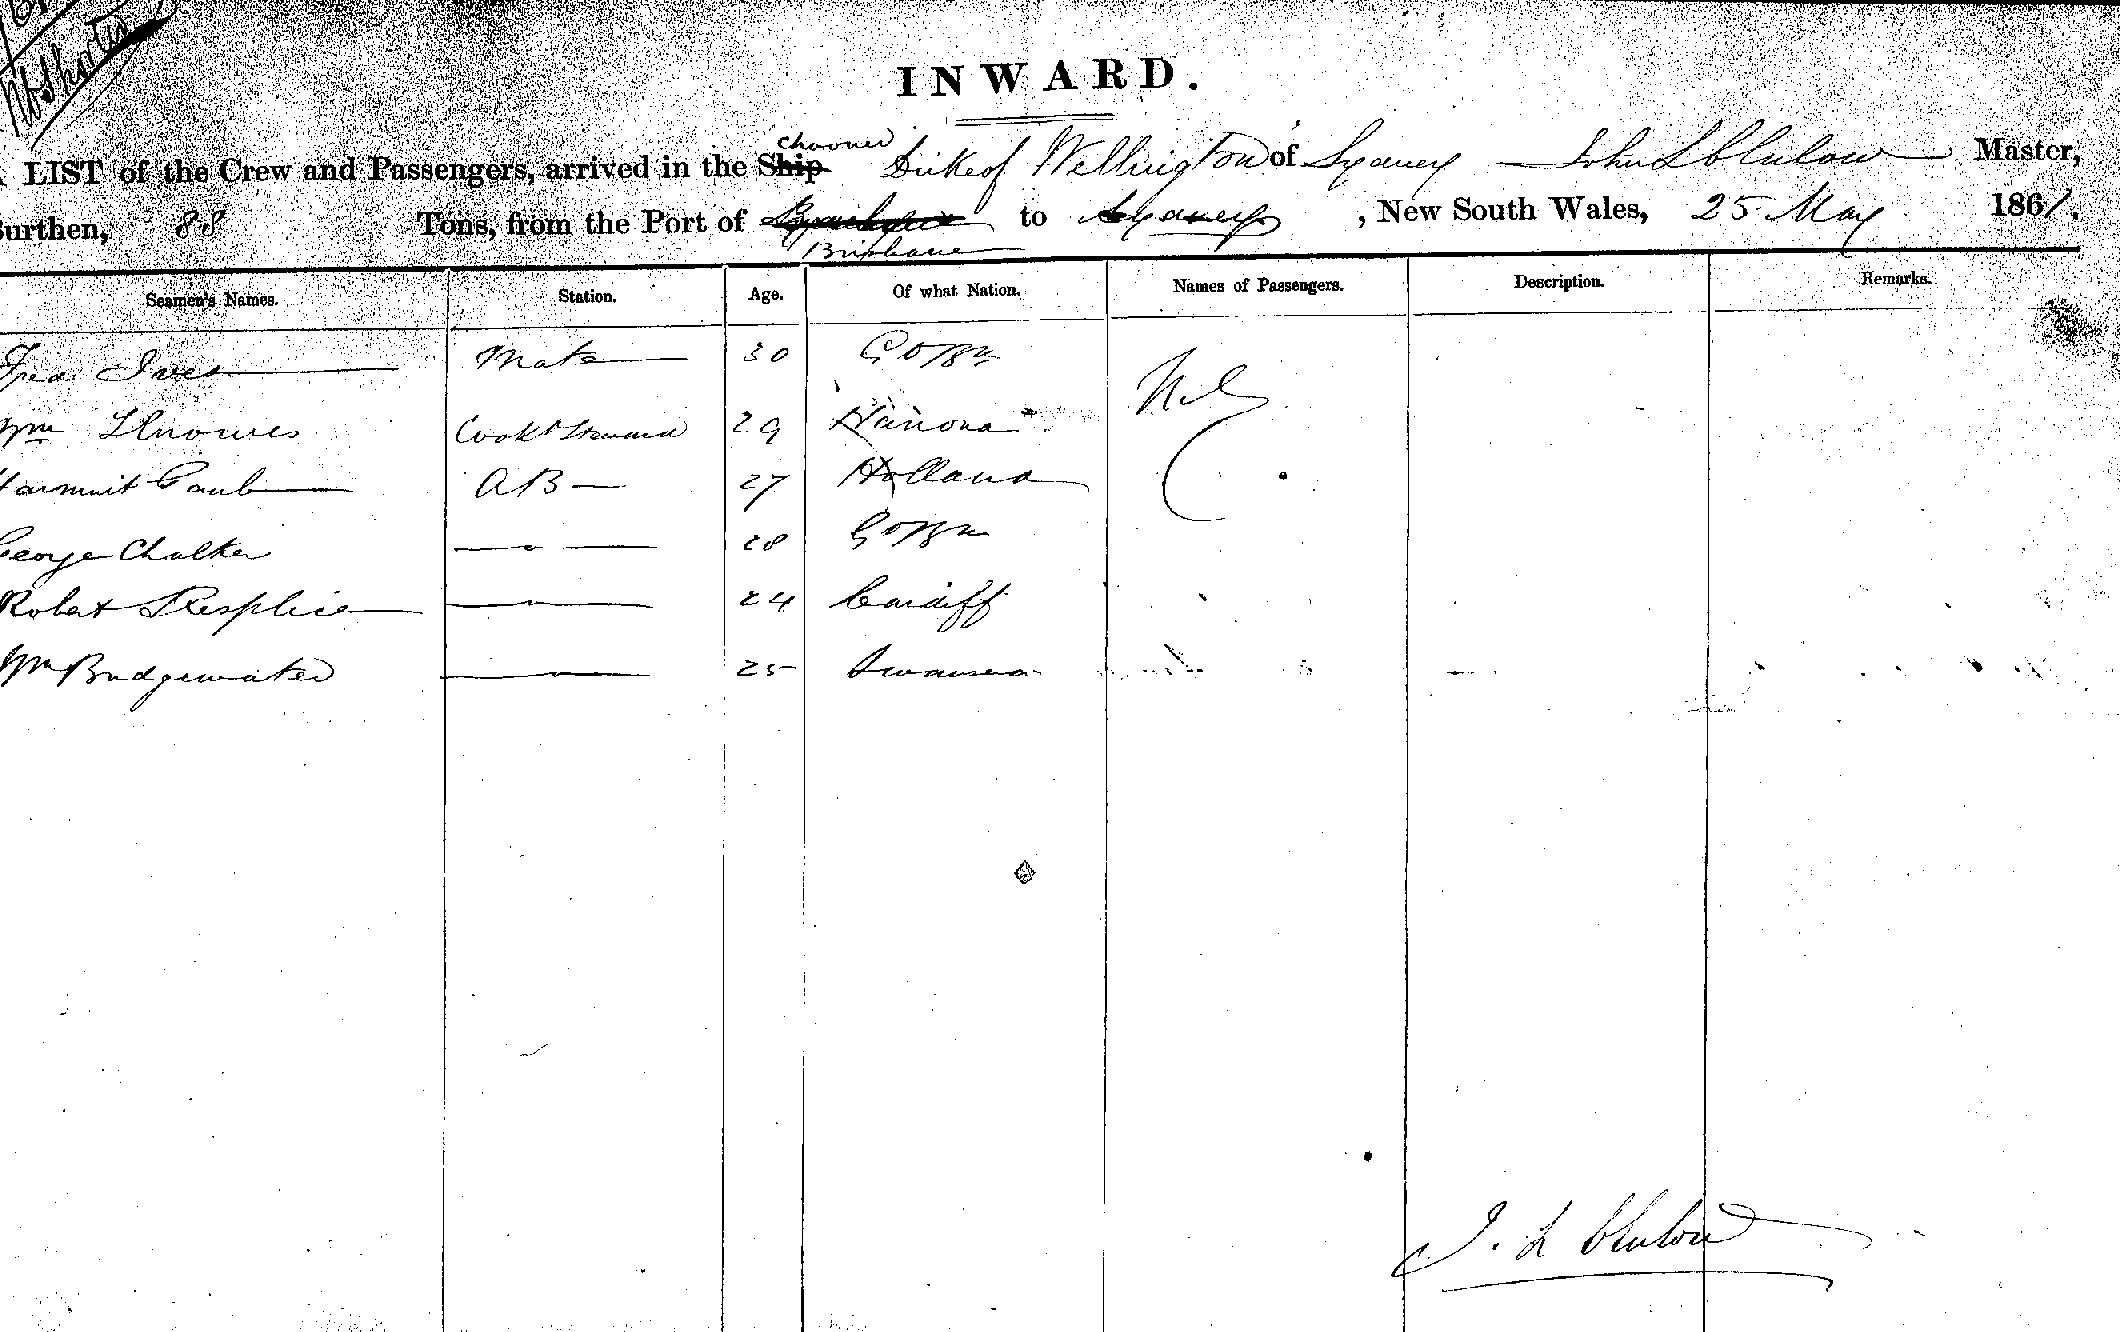 INWARD.
chooner
LIST of the Crew and Passengers, arrived in the Ship Duke of Wellington of Sydney John L Master,
Burthen, 88 Tons, from the Port of to Sydney, New South Wales, 25 May 1861.
Brisbane
Seamen's Names. Station. Age. Of what Nation. Names of Passengers. Description. Remarks.
Fred Ives Mate 30 Nil
Wm Cook & Steward 29 Hanova
Paul AB 27 Holland
George Chalker — o — 28
Robert — o — 24 Cardiff
Wm Bridgewater 25 Swansea
J. L